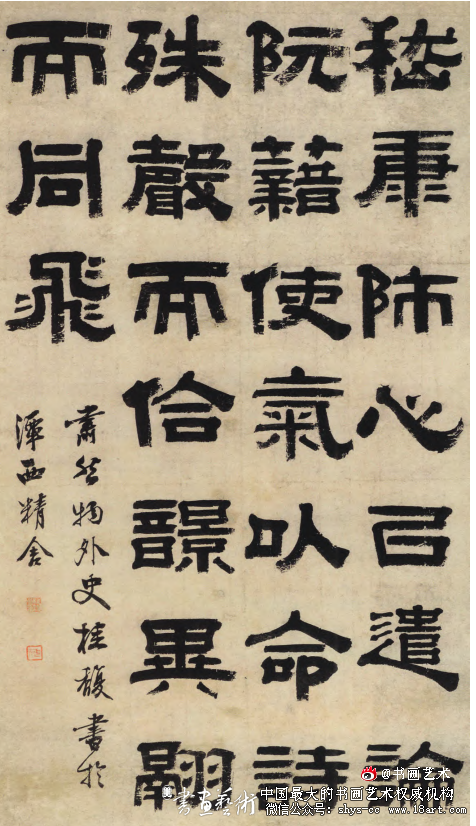 嵇康師心㠯遣論
阮藉使氣以命詩
殊聲而佮響異翮
而同飛
肅然物外史桂馥書於
潭西精舍
@书画艺术
書畫藝術
中国最大的书画艺术权威机构
微信公众号:shys-cc www.18art.com